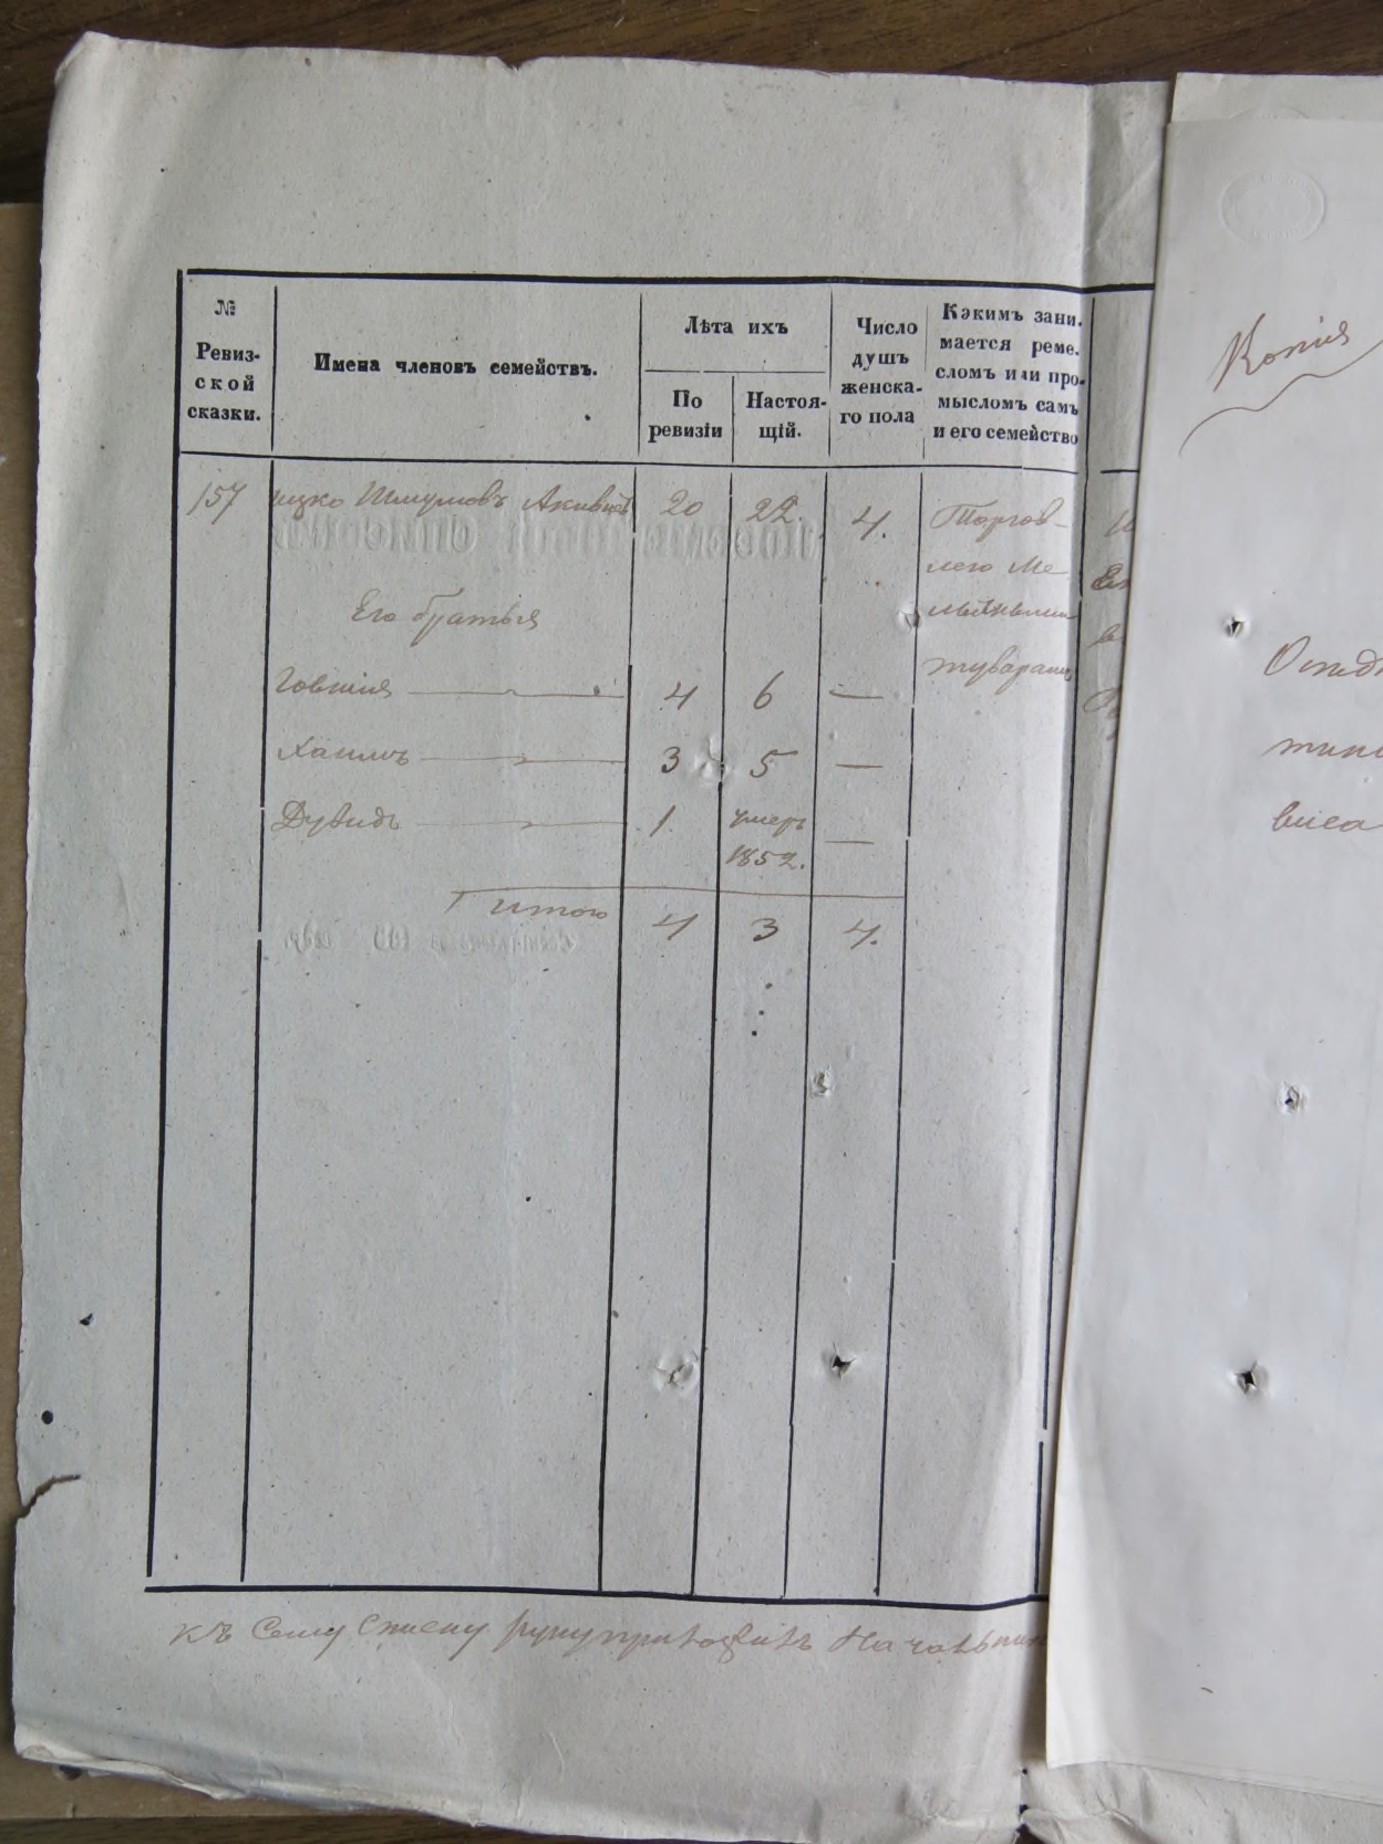 №
Ревиз-
ской
сказки.
Имена членовъ семействъ.
Лѣта ихъ
По
ревизіи
Настоя-
щій.
Число
душъ
женска-
го пола
Какимъ зани-
мается реме-
сломъ или про-
мысломъ самъ
и его семейство
157 ицко Шмулiовъ 20 22. 4. Торгов-
лею Ме
Его братья
товарами
Говшія 4 6 —
Хаимъ 3 5 —
Дувидъ 1. умеръ —
1852.
Итого 4 3 4.
Къ Сему Списку руку приложилъ
Копія